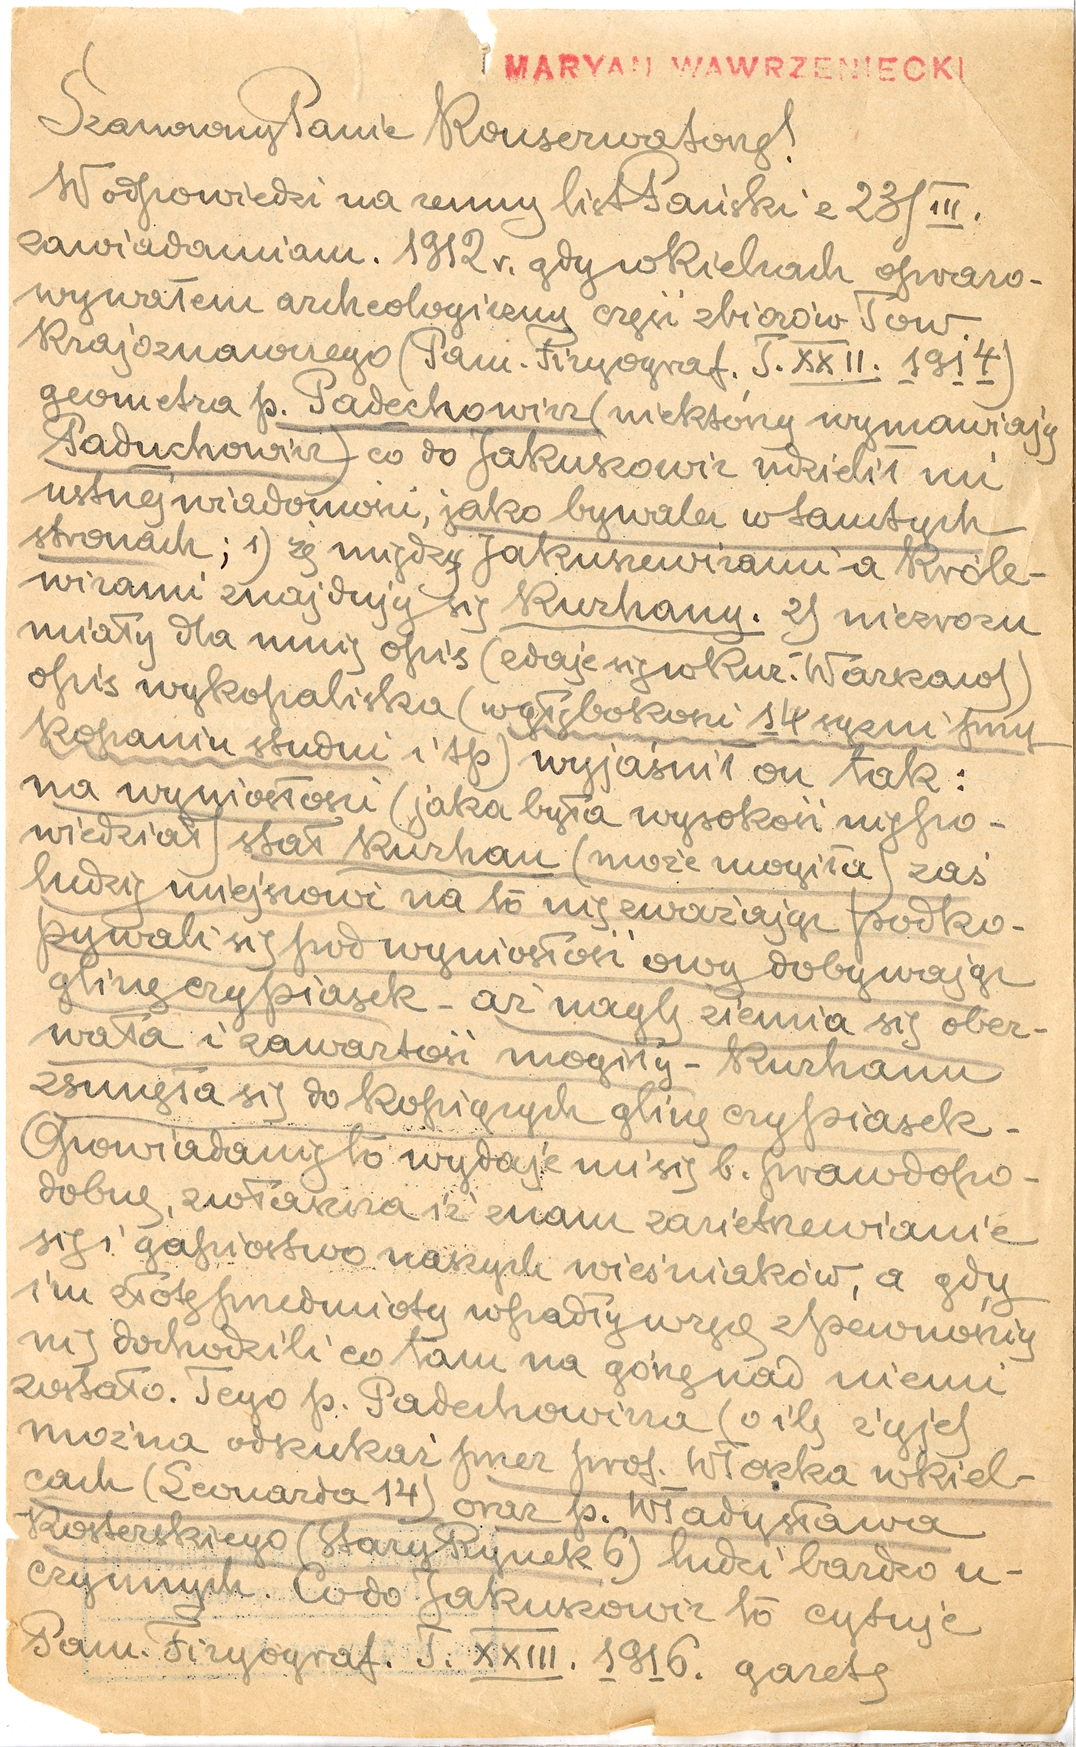 MARYAN WAWRZENIECKI
Szanowny Panie Konserwatorze!
W odpowiedzi na cenny list Pański z 23/III.
zawiadamiam. 1912 r. gdy w Kielcach opraco-
wywałem archeologiczną część zbiorów Tow.
Krajoznawczego (Pam. Fizyograf. T. XXII. 1914)
geometra p. Padechowicz (niektórzy wymawiają
Paduchowicz) co do Jakuszowic udzielił mi
ustnej wiadomości, jako bywalec w tamtych
stronach; 1) że między Jakuszewicami a Króle-
wicami znajdują się Kurhany. 2) niezrozu
miały dla mnie opis (zdaje się w Kur. Warszaws)
opis wykopaliska (w głębokości 14 sążni przy
kopaniu studni i tp) wyjaśnił on tak:
na wyniosłości (jaka była wysokość nie po-
wiedział) stał Kurhan (może mogiła) zaś
ludzie miejscowi na to nie zważając podko-
pywali się pod wyniosłość ową dobywając
glinę czy piasek - aż nagle ziemia się ober-
wała i zawartość mogiły - Kurhanu
zsunęła się do kopiących glinę czy piasek -
Opowiadanie to wydaje mi się b. prawdopo-
dobne, zwłaszcza iż znam zacietrzewianie
się i gapiostwo naszych wieśniaków, a gdy
im złote przedmioty wpadły w ręce z pewnością
nie dochodzili co tam na górze nad niemi
zostało. Tego p. Padechowicza (o ile żyje)
można odszukać przez prof. Włoszka w Kiel-
cach (Leonarda 14) oraz p. Władysława
Kosterskiego (Stary Rynek 6) ludzi bardzo u-
czynnych. Co do Jakuszowic to cytuje
Pam. Fizyograf. T. XXIII. 1916. gazetę